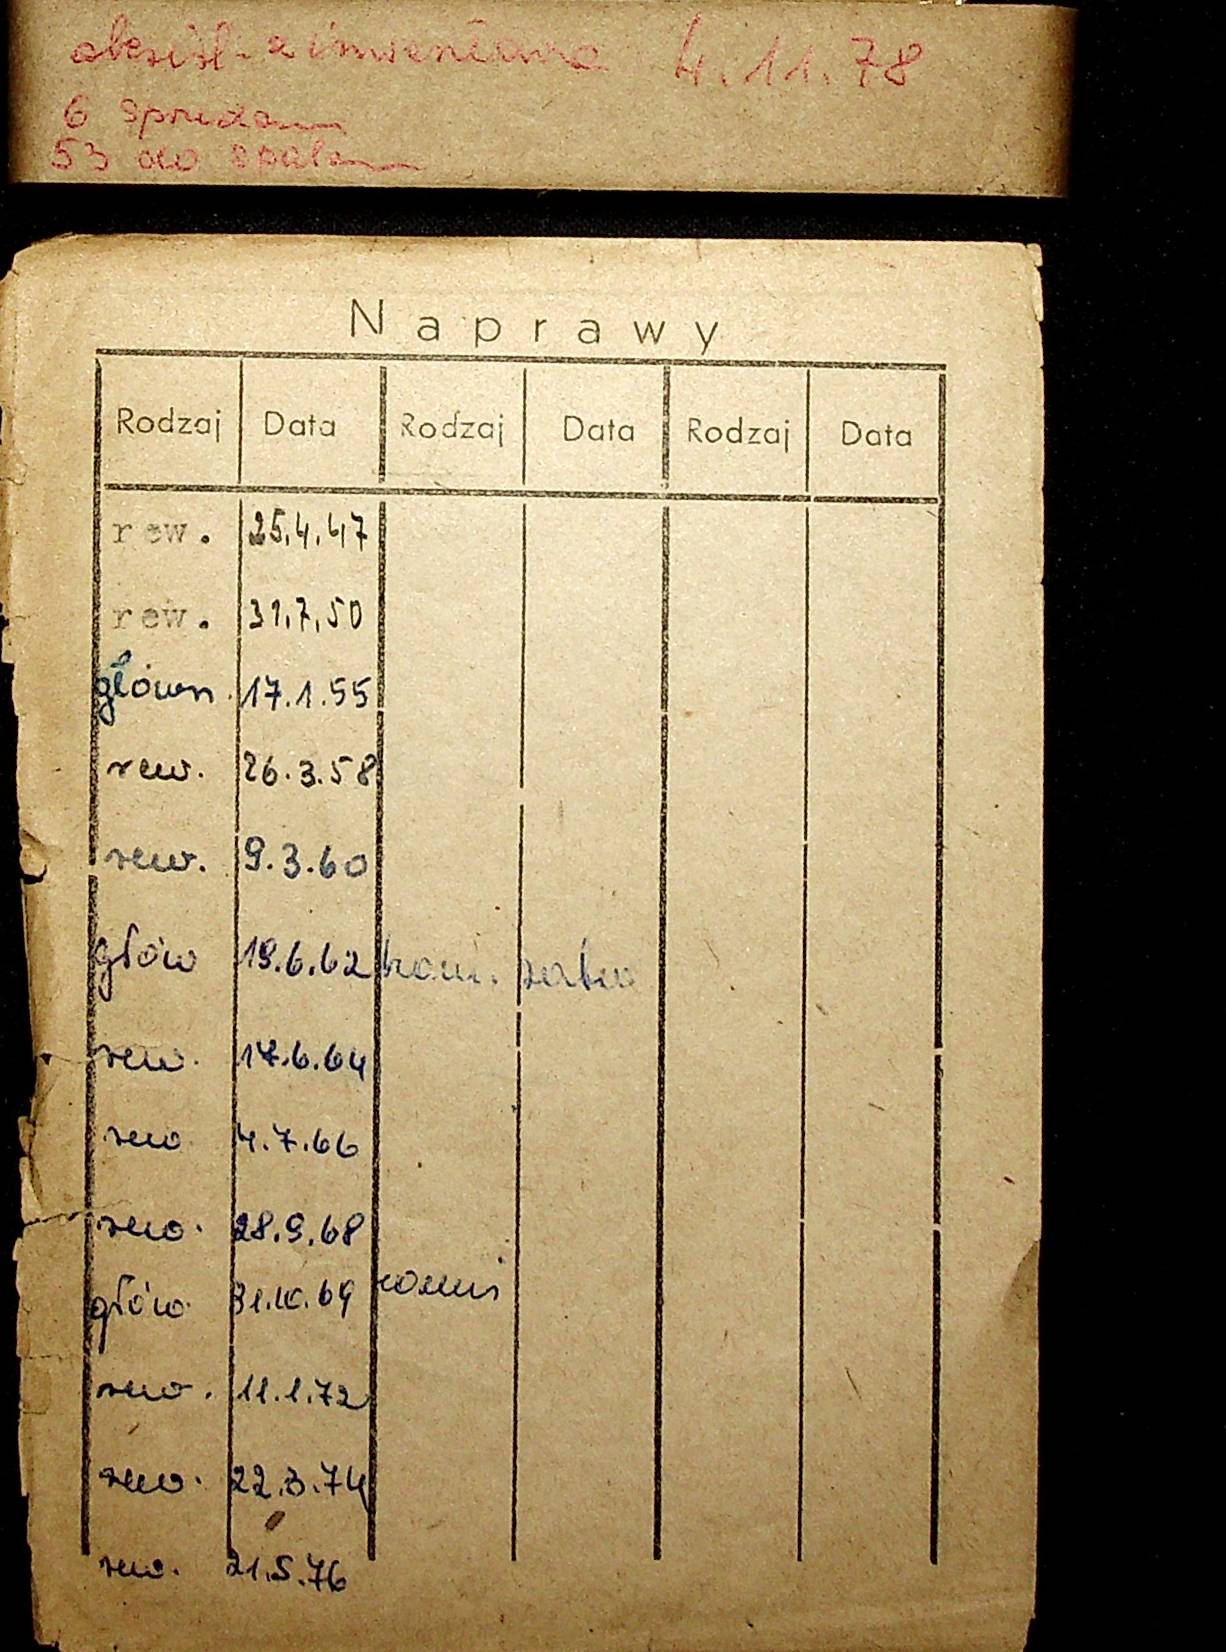 z inwentarza 4.11.78
6 sprzedano
53 do spalen
Naprawy
Rodzaj Data Rodzaj Data Rodzaj Data
rew. 25.4.47
rew. 31.7.50
główn. 17.1.55
rew. 26.3.58
rew. 9.3.60
głów 19.6.62
rew. 17.6.64
rew 4.7.66
rew. 28.9.68
głów. 31.10.69
rew. 11.1.72
rew. 22.3.74
rew. 21.5.76